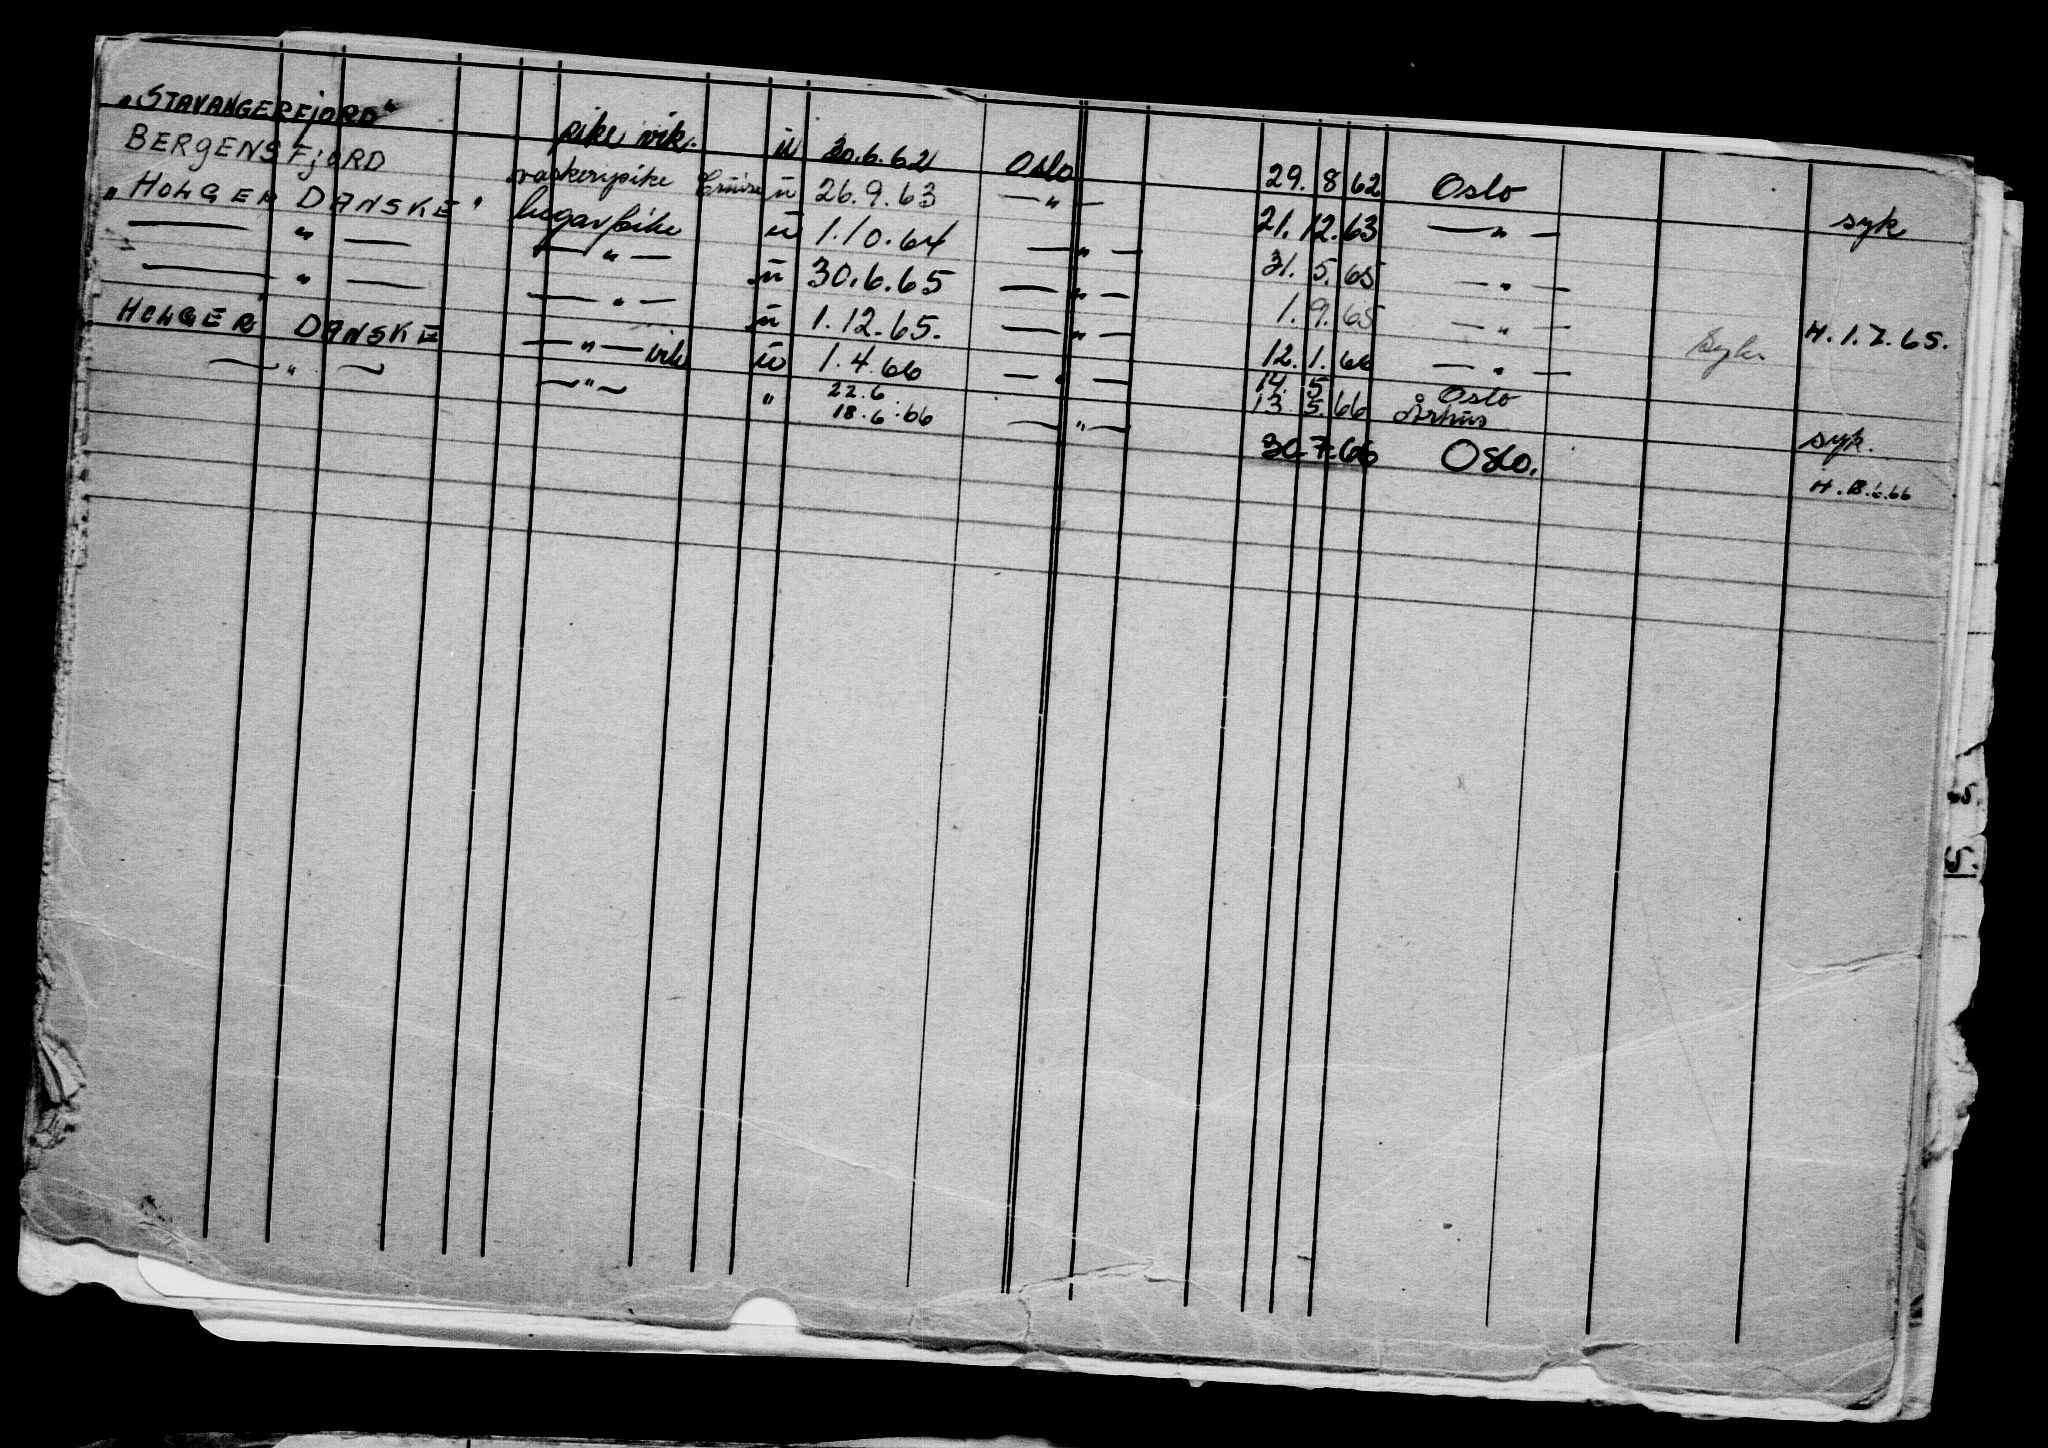 „STAVANGERFJORD“ pike vik. ü 30.6.62 Oslo 29. 8 62 Oslo syk
BERGENSFJORD vaskeripike Cruise ü 26.9.63 — „ — 21. 12. 63 — „ —
„HOLGER DANSKE“ lugarpike ü 1.10.64 — „ — 31. 5. 65 — „ —
— „ — — „ — ü 30.6.65 — „ — 1. 9. 65 — „ — H. 1.7.65.
— „ — — „ — ü 1.12.65. — „ — 12. 1. 66 — „ —
HOLGER DANSKE — „ — vik ü 1.4.66 — „ — 14. 5 Oslo
13. 5. 66 Århus syk.
— „ — — „ — „ 22.6.
18.6.66 — „ — 30.7.66 Oslo. H. 18.6.66